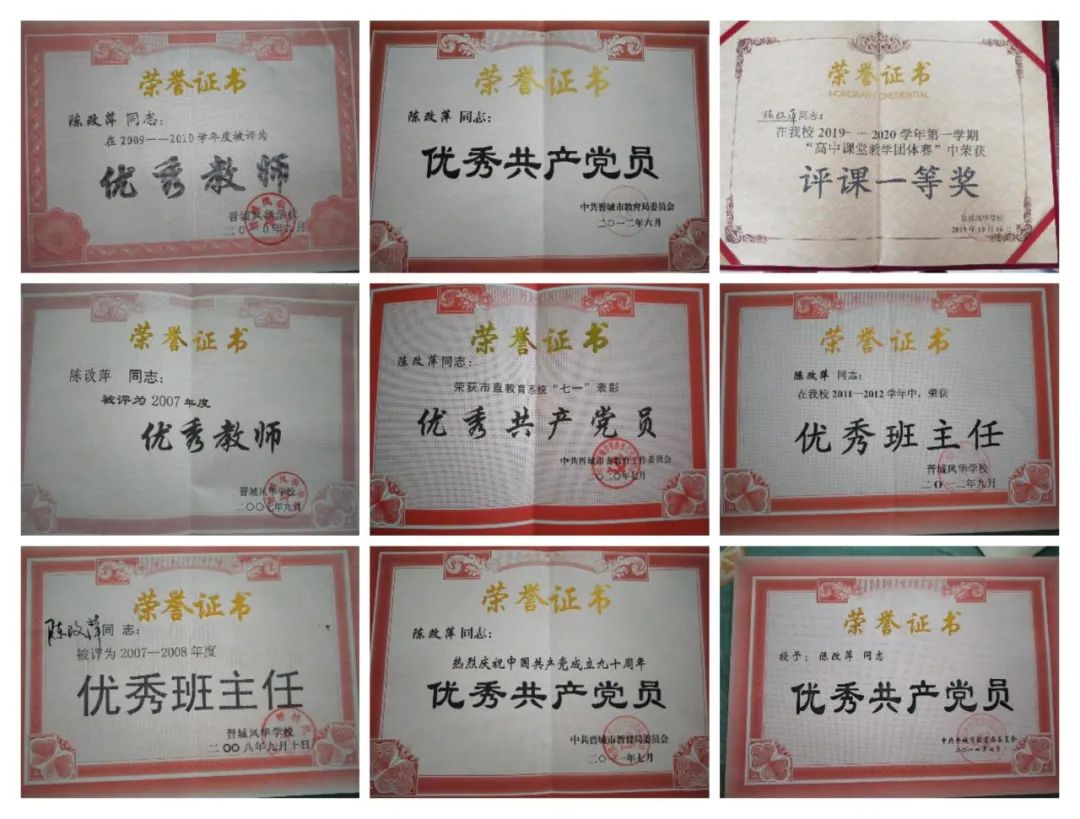 荣誉证书
陈改萍 同志：
在2009——2010学年度被评为
优秀教师
晋城凤华学校
荣誉证书
陈改萍 同志：
优秀共产党员
中共晋城市教育局委员会
二〇一二年六月
荣誉证书
HONORARY CREDENTIAL
陈改萍同志：
在我校2019-－2020学年第一学期
“高中课堂教学团体赛”中荣获
评课一等奖
晋城凤华学校
2019年10月16日
荣誉证书
陈改萍 同志：
被评为2007年度
优秀教师
晋城凤华学校
二〇〇七年九月
荣誉证书
陈改萍同志：
荣获市直教育系统“七一”表彰
优秀共产党员
荣誉证书
陈改萍 同志：
在我校2011—2012学年中，荣获
优秀班主任
晋城凤华学校
二〇一二年九月
荣誉证书
陈改萍同 志：
被评为2007—2008年度
优秀班主任
晋城凤华学校
二〇〇八年九月十日
荣誉证书
陈改萍 同志：
热烈庆祝中国共产党成立九十周年
优秀共产党员
中共晋城市教育局委员会
二〇一一年七月
荣誉证书
授予：陈改萍 同志
优秀共产党员
中共晋城市教育局委员会